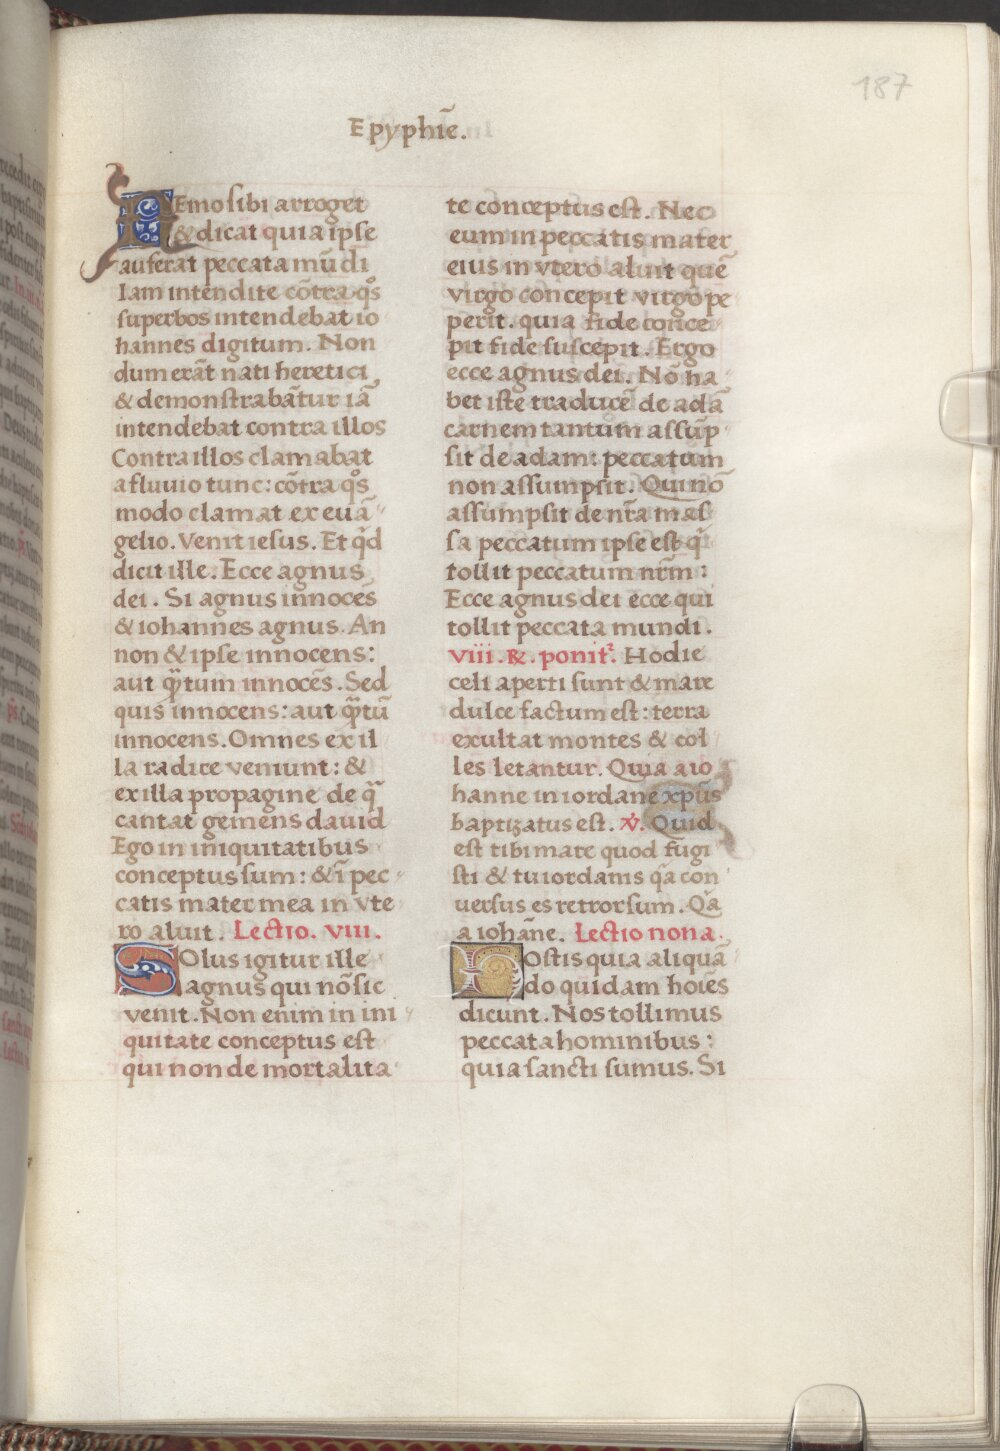 187
Epyphiē.
Nemo sibi arroget
& dicat quia ipse
auferat peccata mūdi
Iam intendite cōtra qͦs
superbos intendebat io
hannes digitum. Non
dum erāt nati heretici
& demonstrabātur iā
intendebat contra illos
Contra illos clamabat
a fluvio tunc: cōtra qͦs
modo clamat ex euā
gelio. Venit iesus. Et qͥd
dicit ille. Ecce agnus
dei. Si agnus innocēs
& iohannes agnus. An
non & ipse innocens:
aut qͣtum innocēs. Sed
quis innocens: aut qͣtū
innocens. Omnes ex il
la radice veniunt: &
ex illa propagine de qͣ
cantat gemens dauid
Ego in iniquitatibus
conceptus sum: & ī pec
catis mater mea in vte
ro aluit. Lectio. viii.
Solus igitur ille
agnus qui nō sic
venit. Non enim in ini
quitate conceptus est
qui non de mortalita
te conceptus est. Nec
eum in peccatis mater
eius in vtero aluit quē
virgo concepit virgo pe
perit. quia fide conce
pit fide suscepit. Ergo
ecce agnus dei. Nō ha
bet iste traducē de adā
carnem tantum assūp
sit de adam: peccatum
non assumpsit. Qui nō
assumpsit de nr̄a mas
sa peccatum ipse est qͥ
tollit peccatum nr̄m:
Ecce agnus dei ecce qui
tollit peccata mundi.
viii. ℟. ponit᷑. Hodie
celi aperti sunt & mare
dulce factum est: terra
exultat montes & col
les letantur. Quia a io
hanne in iordane xp̄us
baptizatus est. ℣. Quid
est tibi mare quod fugi
sti & tu iordanis qͣ con
uersus es retrorsum. Qͣa
a iohāne. Lectio nona.
Hostis quia aliquā
do quidam hoīes
dicunt. Nos tollimus
peccata hominibus:
quia sancti sumus. Si